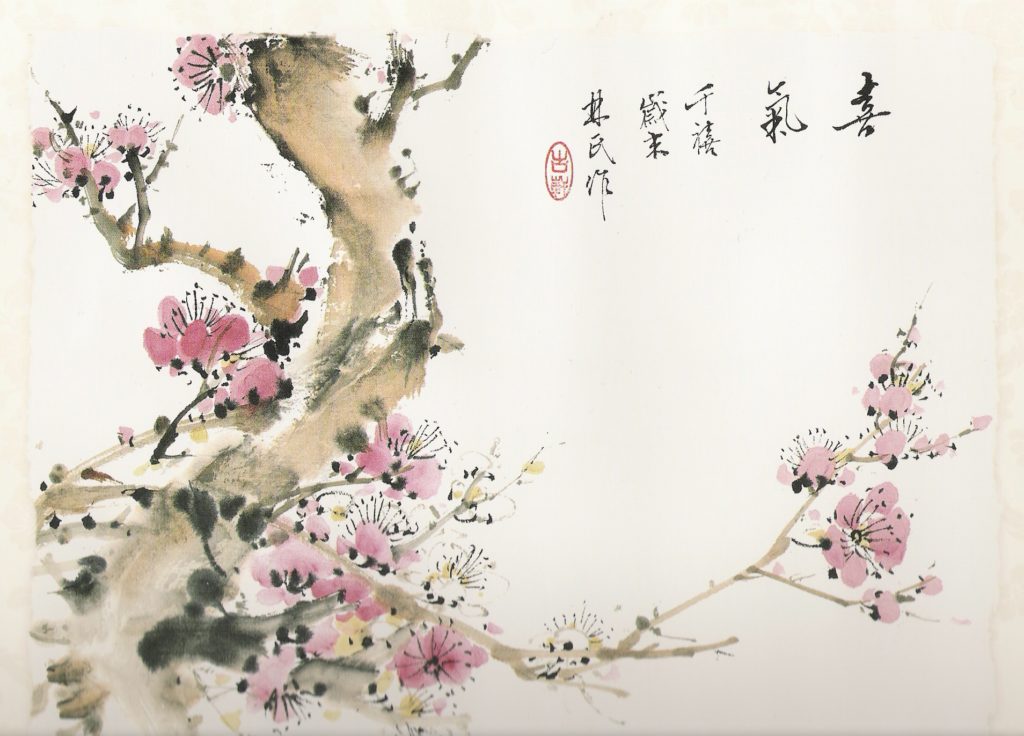 喜
氣
千禧
歲末
林民作